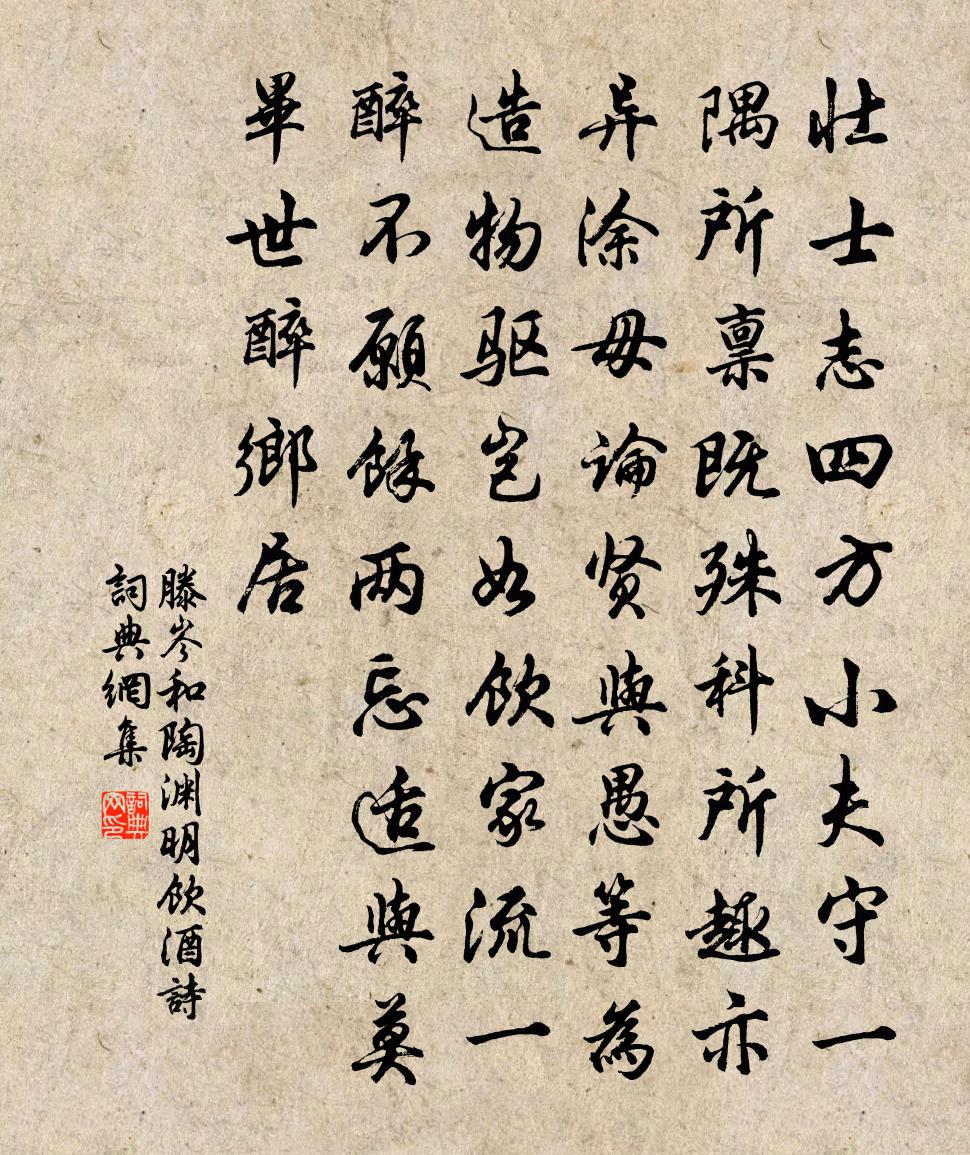 壮士志四方小夫守一
隅所禀既殊科所趣亦
异涂毋論贤與愚等為
造物驱岂如飲家流一
醉不願餘两忘适與莫
畢世醉鄉居
滕岑和陶渊明飲酒詩
詞典網集
詞典
网印